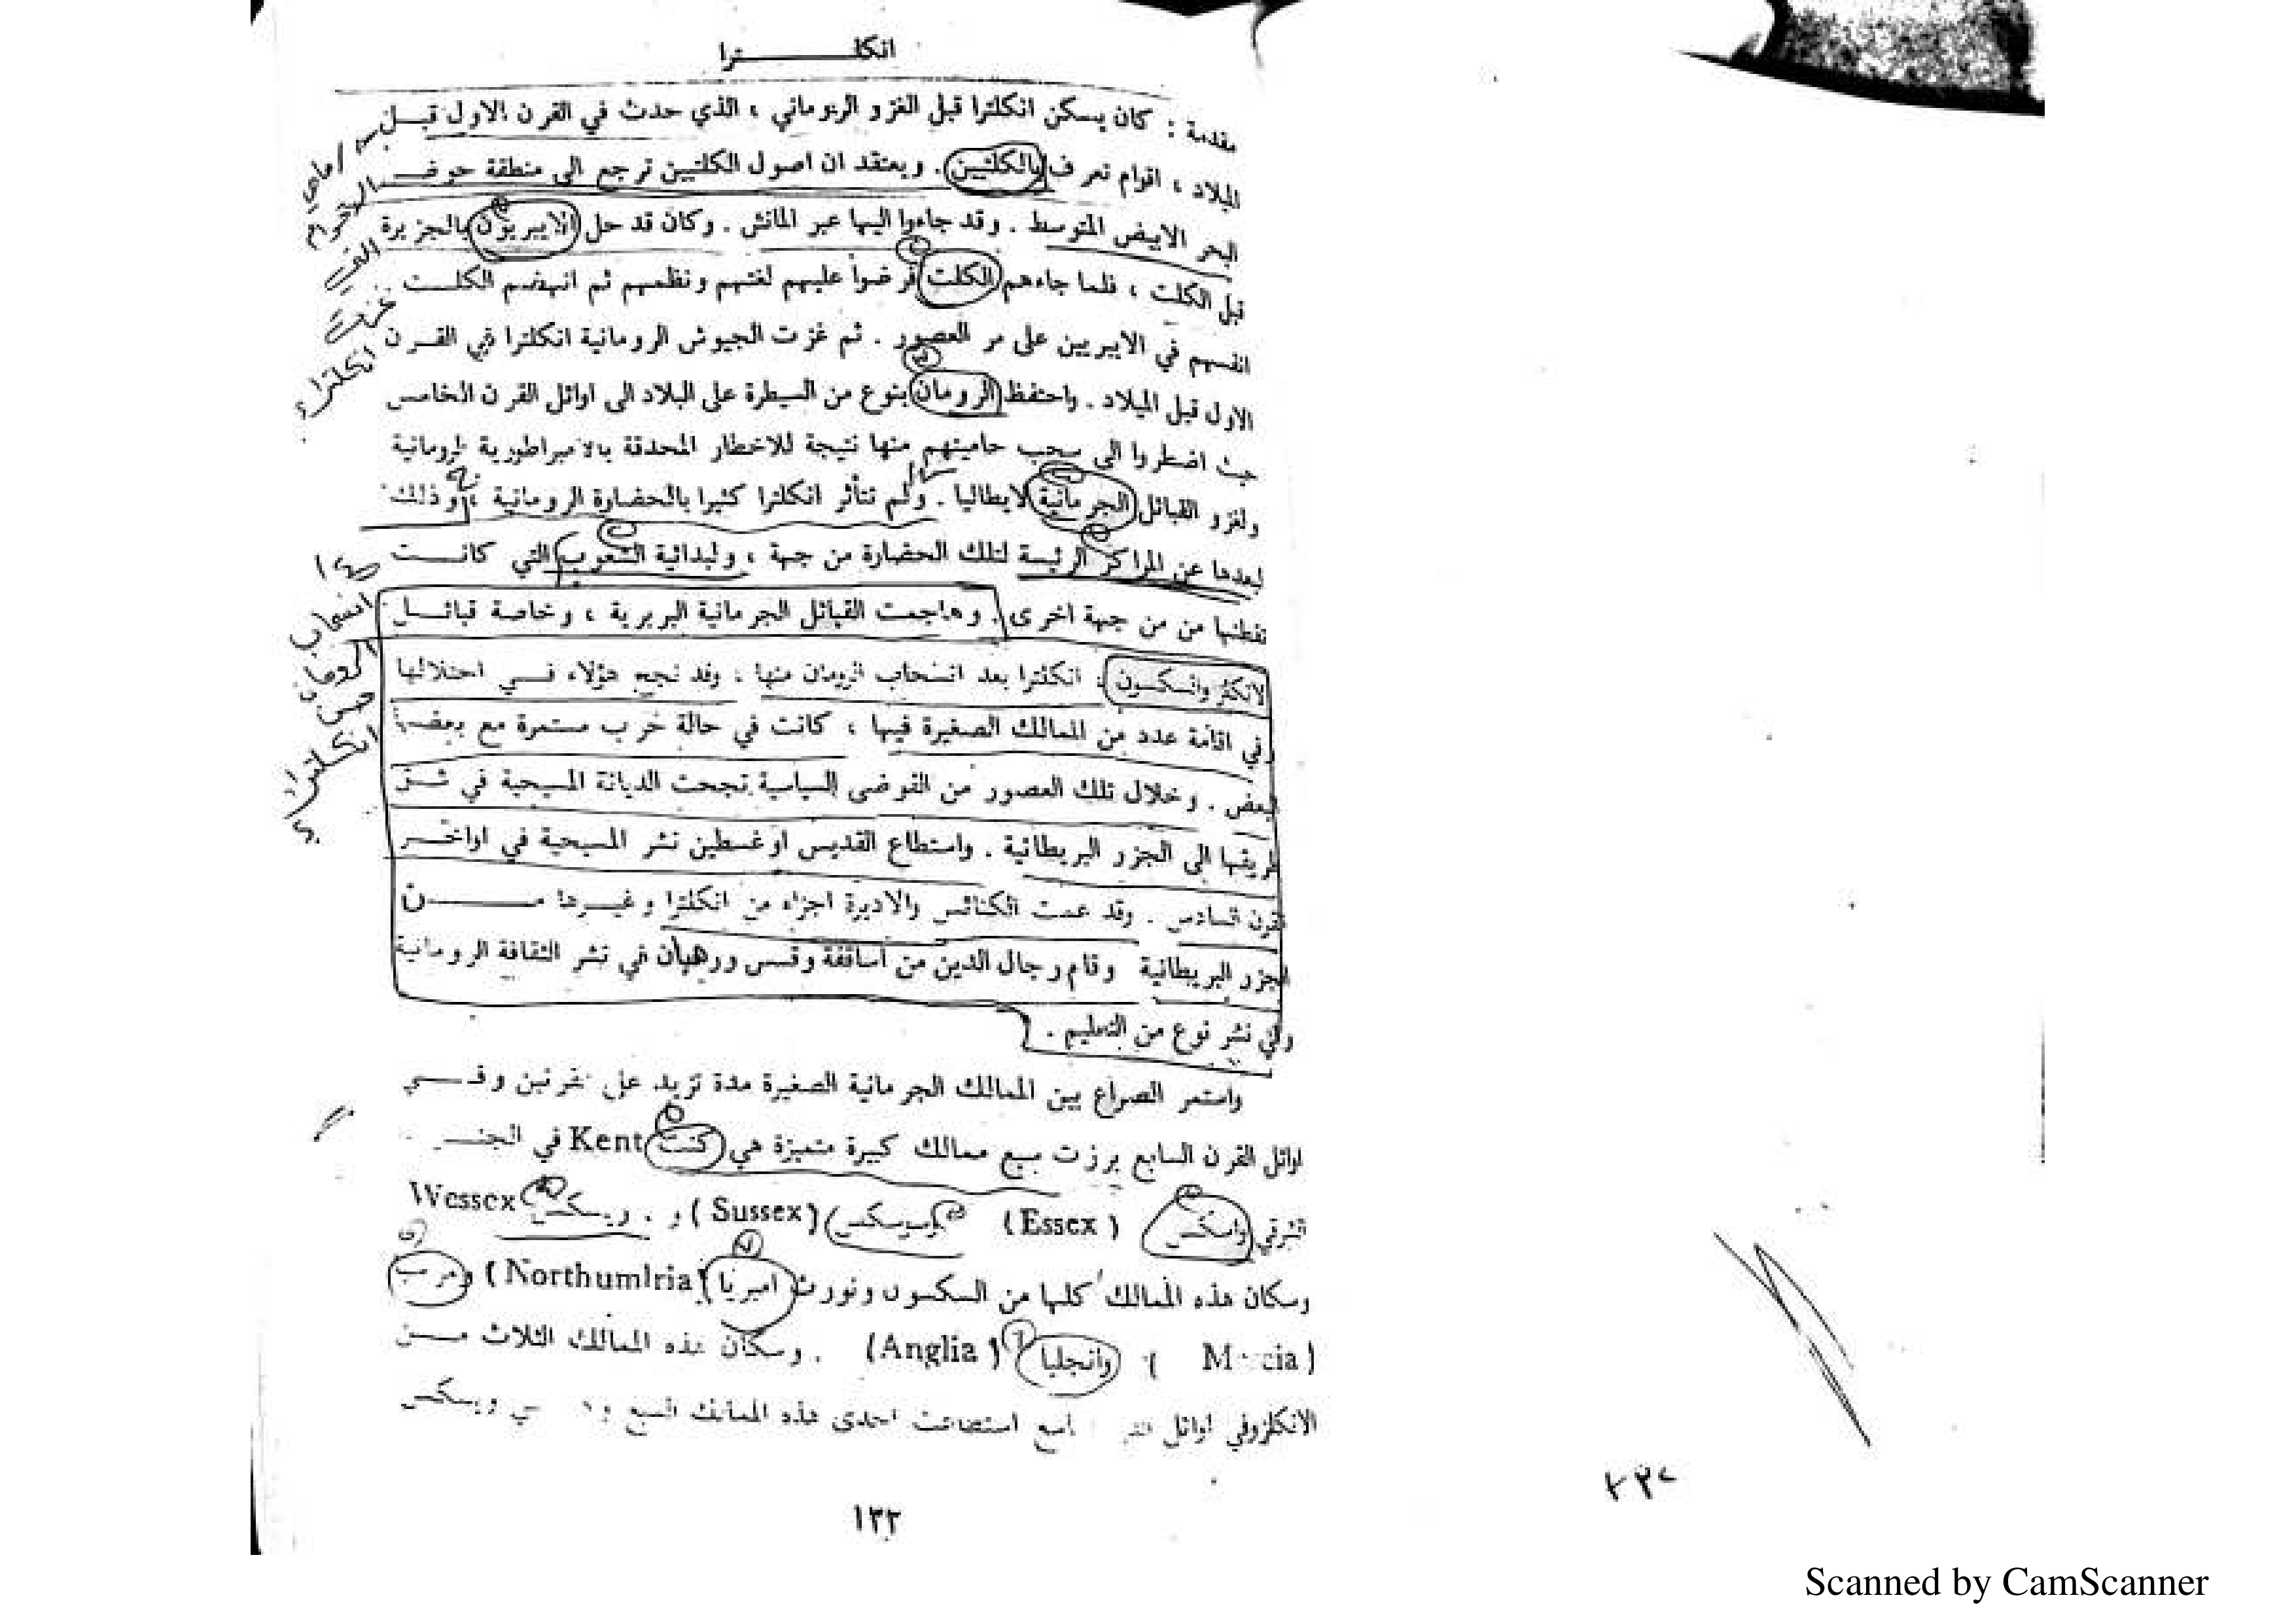 انكلــــــــترا
مقدمة : كان يسكن انكلترا قبل الغزو الروماني ، الذي حدث في القرن الاول قبــل
الميلاد ، اقوام تعرف بالكلتيين . ويعتقد ان اصول الكلتيين ترجع الى منطقة حوض
البحر الابيض المتوسط . وقد جاءوا اليها عبر المانش . وكان قد حل الايبريون بالجزيرة
قبل الكلت ، فلما جاءهم الكلت فرضوا عليهم لغتهم ونظمهم ثم انهضم الكلــت
انفسهم في الايبريين على مر العصور . ثم غزت الجيوش الرومانية انكلترا في القــرن
الاول قبل الميلاد . واحتفظ الرومان بنوع من السيطرة على البلاد الى اوائل القرن الخامس
حيث اضطروا الى سحب حاميتهم منها نتيجة للاخطار المحدقة بالامبراطورية الرومانية
ولغزو القبائل الجرمانية لايطاليا . ولم تتأثر انكلترا كثيرا بالحضارة الرومانية ، وذلك
لبعدها عن المراكز الرئيسة لتلك الحضارة من جهة ، ولبدائية الشعوب التي كانــت
تقطنها من من جهة اخرى . وهاجمت القبائل الجرمانية البربرية ، وخاصة قبائــل
الانكلز والسكسون ، انكلترا بعد انسحاب الرومان منها ، وقد نجح هؤلاء فــي احتلالها
وفي اقامة عدد من الممالك الصغيرة فيها ، كانت في حالة حرب مستمرة مع بعضها
البعض . وخلال تلك العصور من الفوضى السياسية نجحت الديانة المسيحية في شــق
طريقها الى الجزر البريطانية . واستطاع القديس اوغسطين نشر المسيحية في اواخــر
القرن السادس . وقد عمت الكنائس والاديرة اجزاء من انكلترا وغيــرها مــــــن
الجزر البريطانية وقام رجال الدين من أساقفة وقسس ورهبان في نشر الثقافة الرومانية
وفي نشر نوع من التعليم .
واستمر الصراع بين الممالك الجرمانية الصغيرة مدة تزيد على قرنين وفــي
اوائل القرن السابع برزت سبع ممالك كبيرة متميزة هي كنت Kent في
الشرقي واسكس (Essex) وسوسكس (Sussex) و . ويسكس Wessex
وسكان هذه الممالك كلها من السكسون ونورث امبريا (Northumlria)
وانجليا (Anglia) . وسكان هذه الممالك الثلاث مــن
الانكلز وفي اوائل استطاعت احدى هذه الممالك السبع ويسكس
اهم
الاقوام
التي
غزت
انكلترا
انسحاب
الرومان
من
انكلترا
١٣٢
Scanned by CamScanner